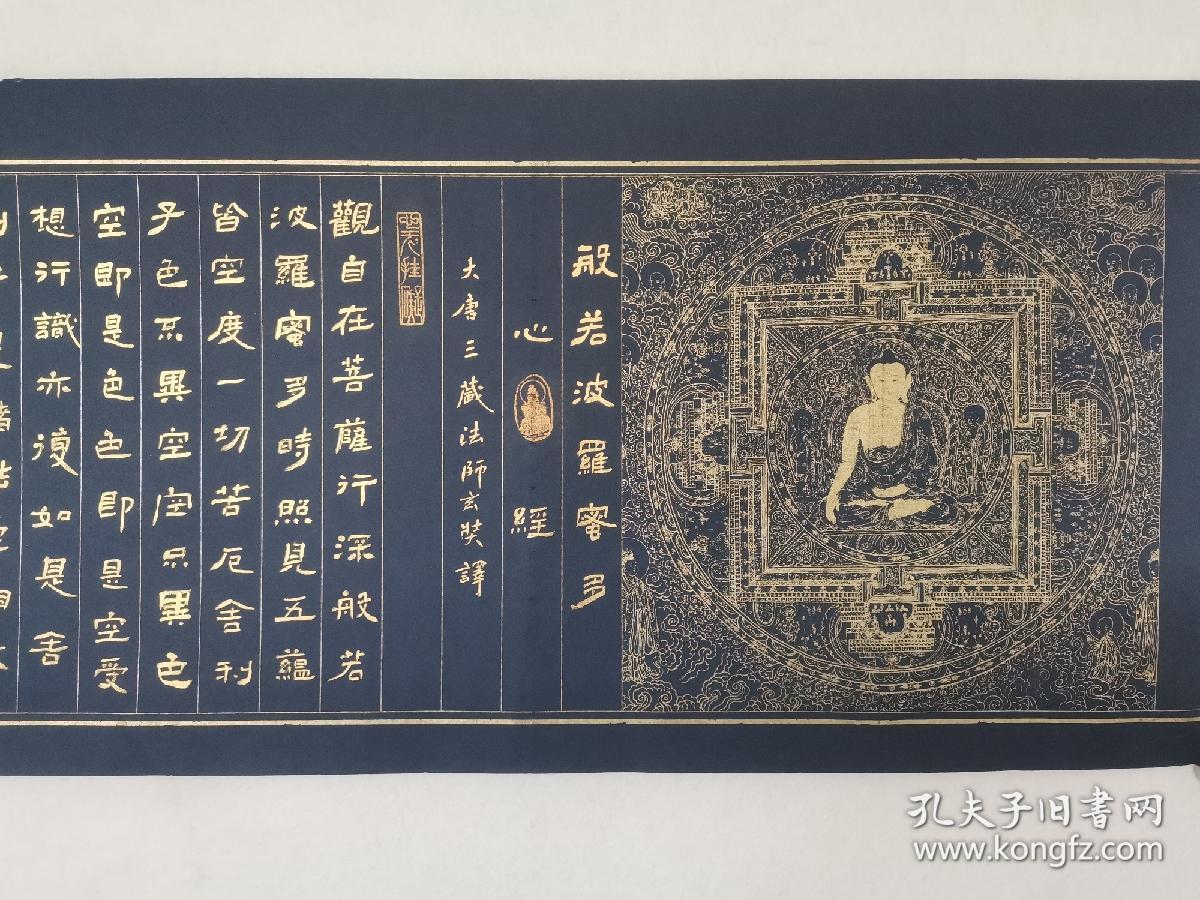 般若波羅蜜多
心經
大唐三藏法師玄奘譯
觀自在菩薩行深般若
波羅蜜多時照見五蘊
皆空度一切苦厄舍利
子色不異空空不異色
空即是色色即是空受
想行識亦復如是舍
孔夫子旧书网
www.kongfz.com